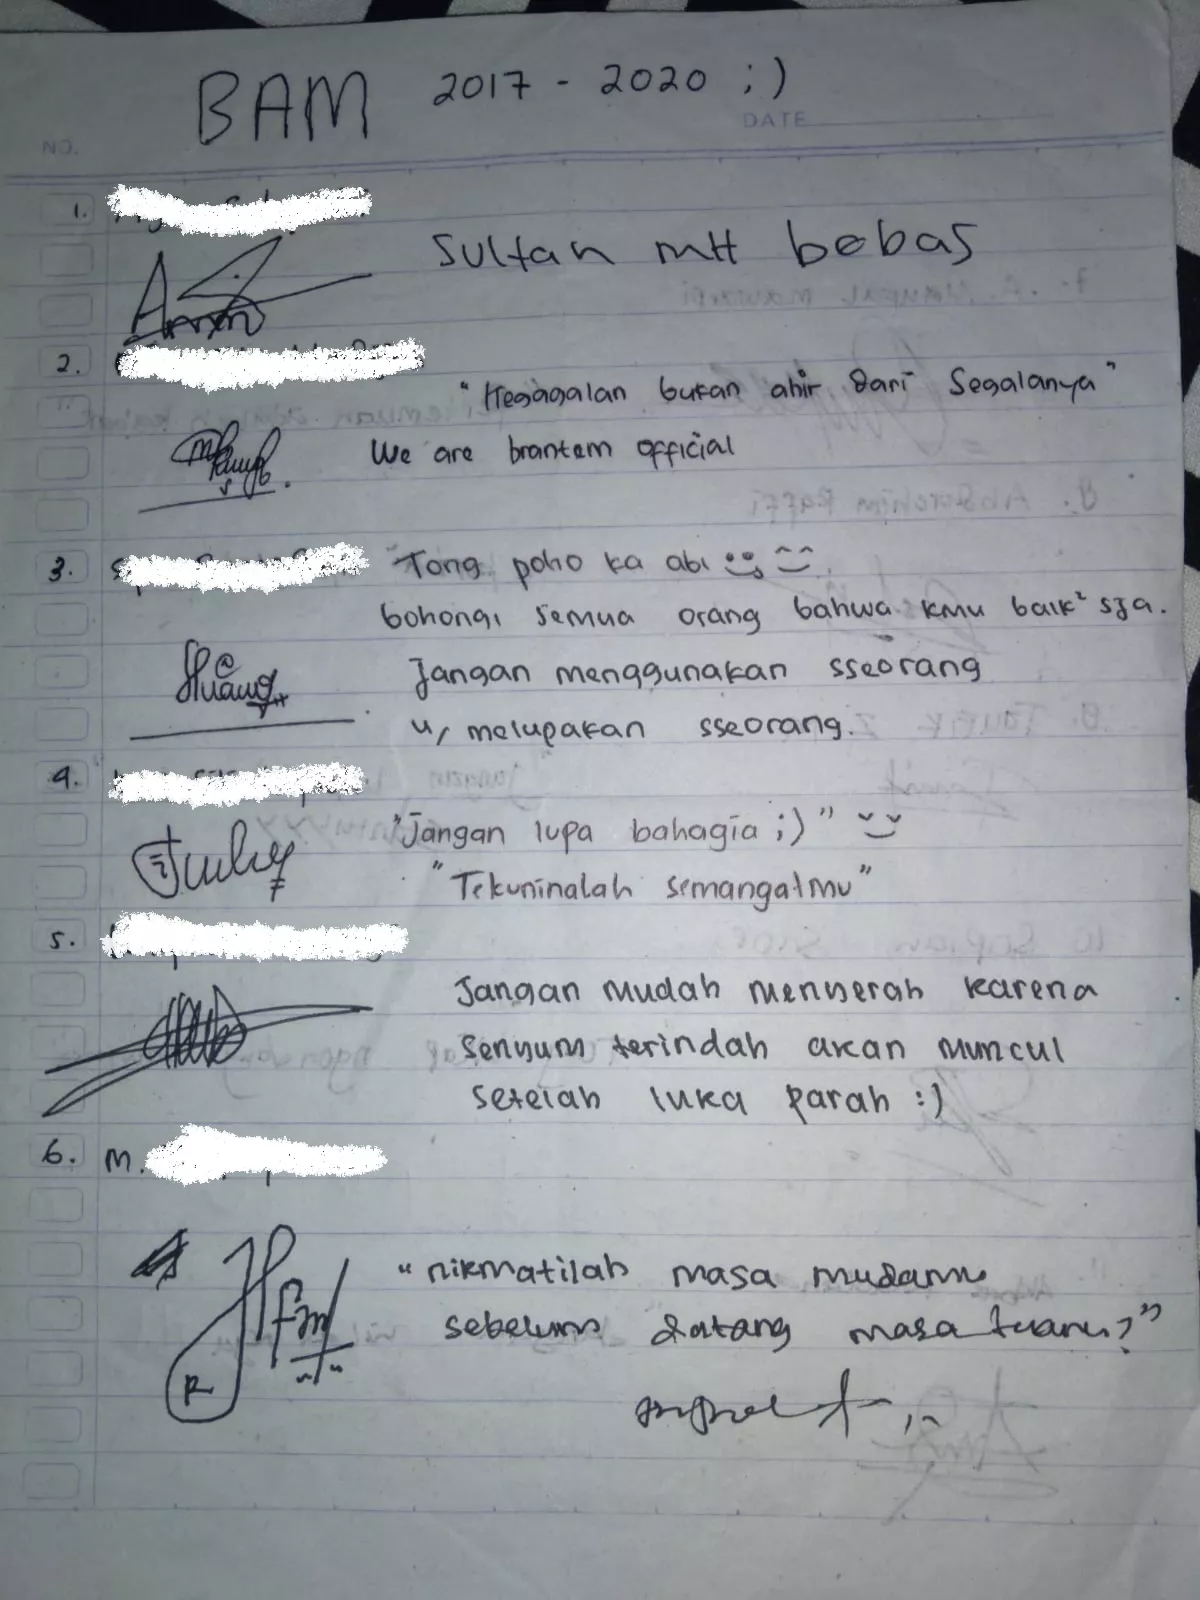 BAM 2017 - 2020 ;)
NO.
DATE
1.
Sultan mH bebas
2.
"Kegagalan bukan ahir dari Segalanya"
We are brantem official
3.
Tong poho ka abi
bohongi semua orang bahwa kmu baik² sja.
Jangan menggunakan sseorang
u/ melupakan sseorang.
4.
"Jangan lupa bahagia ;)"
"Tekuninalah semangatmu"
5.
Jangan mudah menyerah karena
senyum terindah akan muncul
setelah luka parah :)
6. M.
"nikmatilah masa mudamu
sebelum datang masa tuamu?"